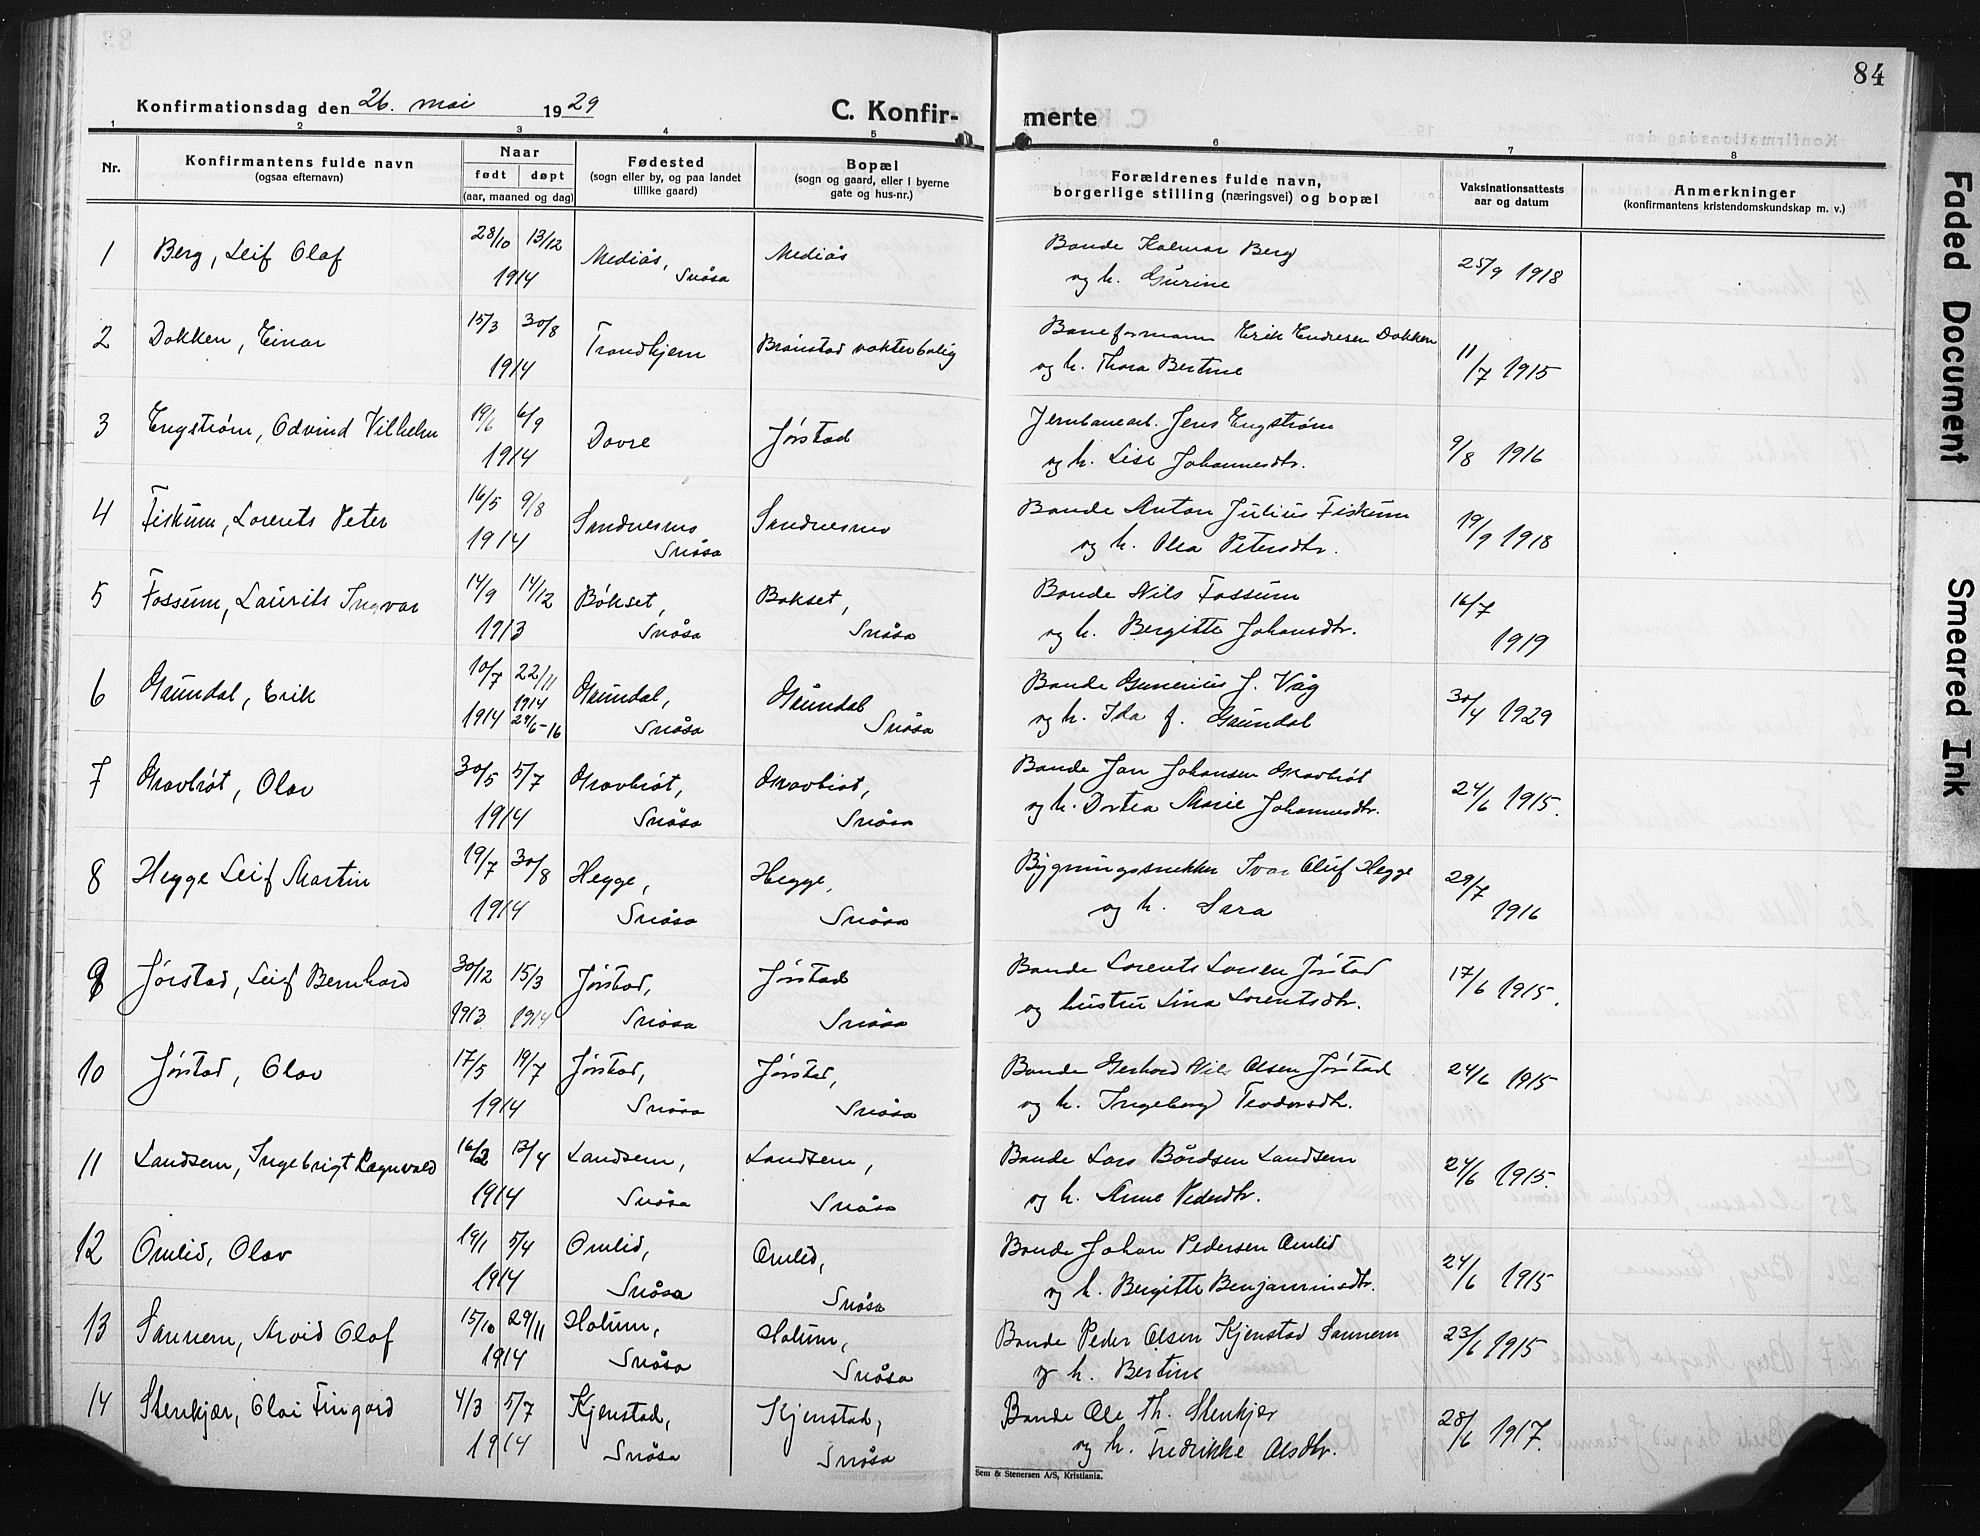 84
Konfirmationsdag den 26. mai 1929
C. Konfir- merte
1 2 3 4 5 6 7 8
Nr.
Konfirmantens fulde navn
(ogsaa efternavn)
Naar
født døpt
(aar, maaned og dag)
Fødested
(sogn eller by, og paa landet
tillike gaard)
Bopæl
(sogn og gaard, eller i byerne
gate og hus-nr.)
Forældrenes fulde navn,
borgerlige stilling (næringsvei) og bopæl
Vaksinationsattests
aar og datum
Anmerkninger
(konfirmantens kristendomskundskap m. v.)
1 Berg, Leif Olaf 28/10 13/12 Mediås, Mediås Bonde Kalmar Berg 25/9 1918
1914 Snåsa og h. Gurine
2 Dokken, Einar 15/3 30/8 Trondhjem Brønstad vokterbolig Baneformann Erik Endresen Dokken 11/7 1915
1914 og h. Thora Bertine
3 Engstrøm, Odvind Vilhelm 19/6 6/9 Dovre Jørstad Jernbanearb. Jens Engstrøm 9/8 1916
1914 og h. Lise Johannesdtr.
4 Fiskum, Lorents Peter 16/5 9/8 Sandnesmo Sandnesmo Bonde Anton Julius Fiskum 19/9 1918
1914 Snåsa og h. Olea Petersdtr.
5 Fossum, Laurits Ingvar 14/9 14/12 Bakset, Bakset, Bonde Nils Fossum 16/7
1913 Snåsa Snåsa og h. Bergitte Johansdtr. 1919
6 Gaundal, Erik 10/7 22/11 Gaundal, Gaundal Bonde Gunerius J. Våg 30/4 1929
1914 1914 29/6-16 Snåsa Snåsa og h. Ida f. Gaundal
7 Gravbrøt, Olav 30/5 5/7 Gravbrøt, Gravbrøt, Bonde Jon Johansen Gravbrøt 24/6 1915.
1914 Snåsa Snåsa og h. Dortea Marie Johannesdtr.
8 Hegge Leif Martin 19/7 30/8 Hegge, Hegge, Bygningssnekker Ivar Oluf Hegge 29/7
1914 Snåsa Snåsa og h. Sara 1916
9 Jørstad, Leif Bernhard 30/12 15/3 Jørstad, Jørstad Bonde Lorents Larsen Jørstad 17/6 1915.
1913 1914 Snåsa Snåsa og hustru Lina Lorentsdtr.
10 Jørstad, Olav 17/5 19/7 Jørstad, Jørstad, Bonde Gerhard Nils Olsen Jørstad 24/6 1915
1914 Snåsa Snåsa og h. Ingeborg Teodorsdtr.
11 Landsem, Ingebrigt Ragnvald 16/2 13/4 Landsem, Landsem, Bonde Lars Bårdsen Landsem 24/6 1915.
1914 Snåsa Snåsa og h. Anne Pedersdtr.
12 Omlid, Olav 19/1 5/4 Omlid, Omlid, Bonde Johan Pedersen Omlid 24/6 1915
1914 Snåsa Snåsa og h. Bergitte Benjaminsdtr.
13 Sannem, Arvid Olaf 15/10 29/11 Holum, Holum, Bonde Peder Olsen Kjenstad Sannem 23/6 1915
1914 Snåsa Snåsa og h. Bertine
14 Stenkjær, Olai Fingard 4/3 5/7 Kjenstad, Kjenstad, Bonde Ole Th. Stenkjær 28/6 1917.
1914 Snåsa Snåsa og h. Fredrikke Olsdtr.
Sem & Stenersen A/S, Kristiania.
Faded Document
Smeared Ink